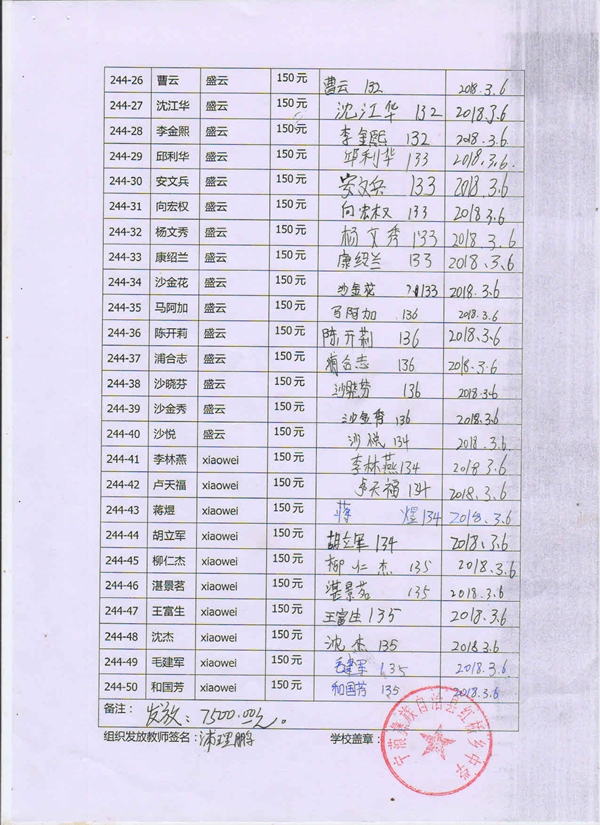 244-26 曹云 盛云 150元 曹云 132 2018.3.6
244-27 沈江华 盛云 150元 沈江华 132 2018.3.6
244-28 李金熙 盛云 150元 李金熙 132 2018.3.6
244-29 邱利华 盛云 150元 邱利华 133 2018.3.6.
244-30 安文兵 盛云 150元 安文兵 133 2018.3.6
244-31 向宏权 盛云 150元 向宏权 133 2018.3.6
244-32 杨文秀 盛云 150元 杨文秀 133 2018.3.6
244-33 康绍兰 盛云 150元 康绍兰 133 2018.3.6
244-34 沙金花 盛云 150元 沙金花 133 2018.3.6
244-35 马阿加 盛云 150元 马阿加 136 2018.3.6
244-36 陈开莉 盛云 150元 陈开莉 136 2018.3.6
244-37 浦合志 盛云 150元 浦合志 136 2018.3.6
244-38 沙晓芬 盛云 150元 沙晓芬 136 2018.3.6
244-39 沙金秀 盛云 150元 沙金秀 136 2018.3.6
244-40 沙悦 盛云 150元 沙悦 134 2018.3.6
244-41 李林燕 xiaowei 150元 李林燕 134 2018.3.6
244-42 卢天福 xiaowei 150元 卢天福 134 2018.3.6
244-43 蒋煜 xiaowei 150元 蒋煜 134 2018.3.6
244-44 胡立军 xiaowei 150元 胡立军 134 2018.3.6
244-45 柳仁杰 xiaowei 150元 柳仁杰 135 2018.3.6
244-46 湛景茗 xiaowei 150元 湛景茗 135 2018.3.6
244-47 王富生 xiaowei 150元 王富生 135 2018.3.6
244-48 沈杰 xiaowei 150元 沈杰 135 2018.3.6
244-49 毛建军 xiaowei 150元 毛建军 135 2018.3.6
244-50 和国芳 xiaowei 150元 和国芳 135 2018.3.6
备注： 发放：7500.00元。
组织发放教师签名： 学校盖章：
宁蒗彝族自治县红桥乡中学